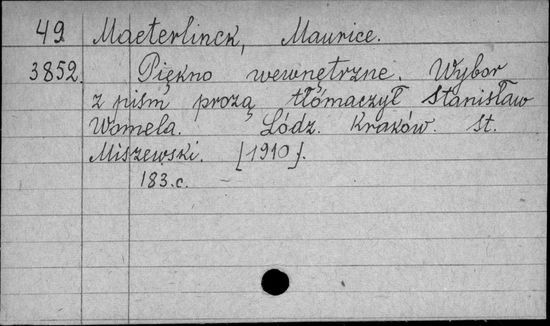 49 Maeterlinck, Maurice.
3852. Piękno wewnętrzne. Wybor
z pism prozą tłómaczył Stanisław
Womela. Łódz. Kraków. St.
Miszewski. [1910].
183.c. –